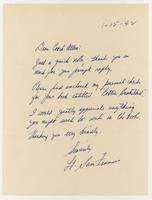 1-15-42
Dear Coach Allen:
Just a quick note, thank you so
much for your prompt reply.
Please find enclosed my personal check
for your book entitled "Better Basketball"
I would greatly appreciate anything
you might wish to write in the book.
Thanking you very kindly.
Sincerely